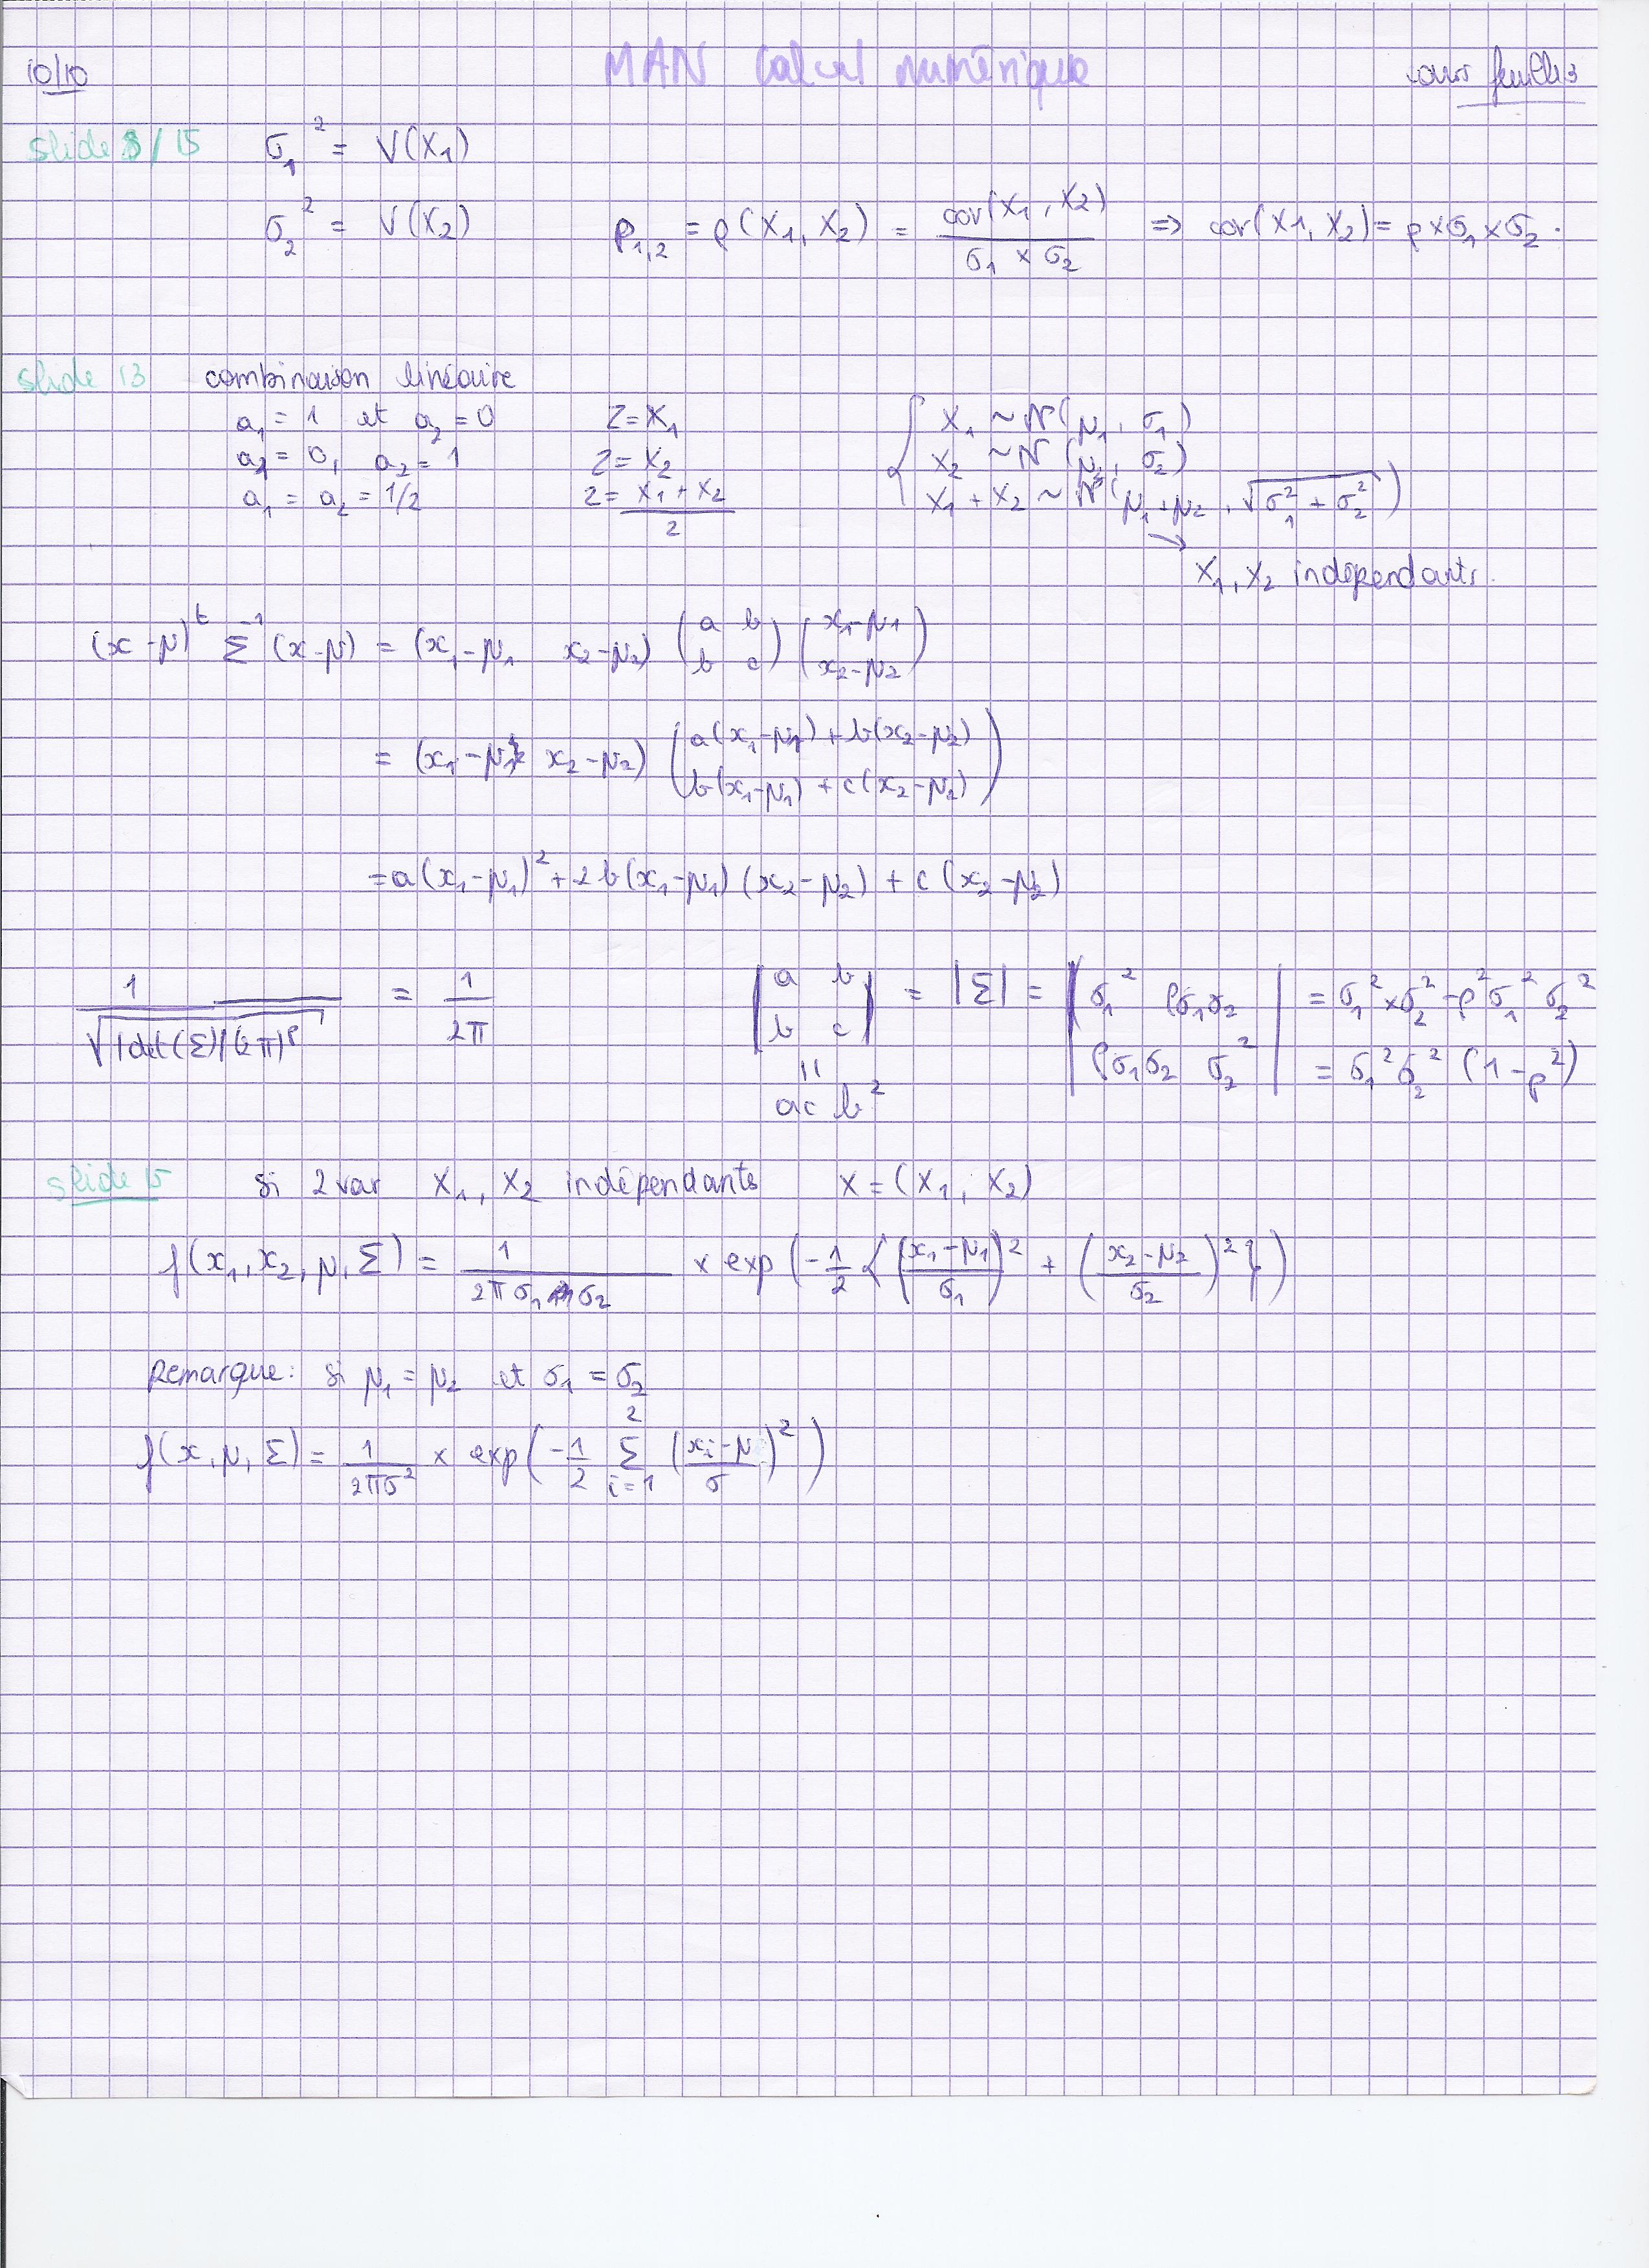 10/10 MAN Calcul numérique cours feuille 3
slide 8/15 σ₁² = V(X₁)
σ₂² = V(X₂) ρ₁,₂ = ρ(X₁, X₂) = cov(X₁, X₂) / (σ₁ × σ₂) ⇒ cov(X1, X₂) = ρ×σ₁×σ₂.
slide 13 combinaison linéaire
a₁ = 1 et a₂ = 0 Z = X₁ { X₁ ~ N(μ₁, σ₁)
a₁ = 0, a₂ = 1 Z = X₂ X₂ ~ N(μ₂, σ₂)
a₁ = a₂ = 1/2 Z = (X₁ + X₂)/2 X₁ + X₂ ~ N(μ₁+μ₂, √(σ₁² + σ₂²))
→ X₁, X₂ indépendants.
(x-μ)ᵗ Σ⁻¹ (x-μ) = (x₁-μ₁ x₂-μ₂) (a b ; b c) (x₁-μ₁ ; x₂-μ₂)
= (x₁-μ₁ x₂-μ₂) (a(x₁-μ₁) + b(x₂-μ₂) ; b(x₁-μ₁) + c(x₂-μ₂))
= a(x₁-μ₁)² + 2b(x₁-μ₁)(x₂-μ₂) + c(x₂-μ₂)
1 / √(|det(Σ)|(2π)ᵖ) = 1/2π |a b ; b c| = |Σ| = |σ₁² ρσ₁σ₂ ; ρσ₁σ₂ σ₂²| = σ₁²×σ₂² - ρ²σ₁²σ₂²
= σ₁²σ₂² (1-ρ²)
||
ac b²
slide 15 si 2 var X₁, X₂ indépendants X = (X₁, X₂)
f(x₁, x₂, μ, Σ) = 1/(2πσ₁σ₂) × exp(-1/2 {((x₁-μ₁)/σ₁)² + ((x₂-μ₂)/σ₂)²})
Remarque: si μ₁ = μ₂ et σ₁ = σ₂
f(x, μ, Σ) = 1/(2πσ²) × exp(-1/2 Σᵢ₌₁² ((xᵢ-μ)/σ)²)